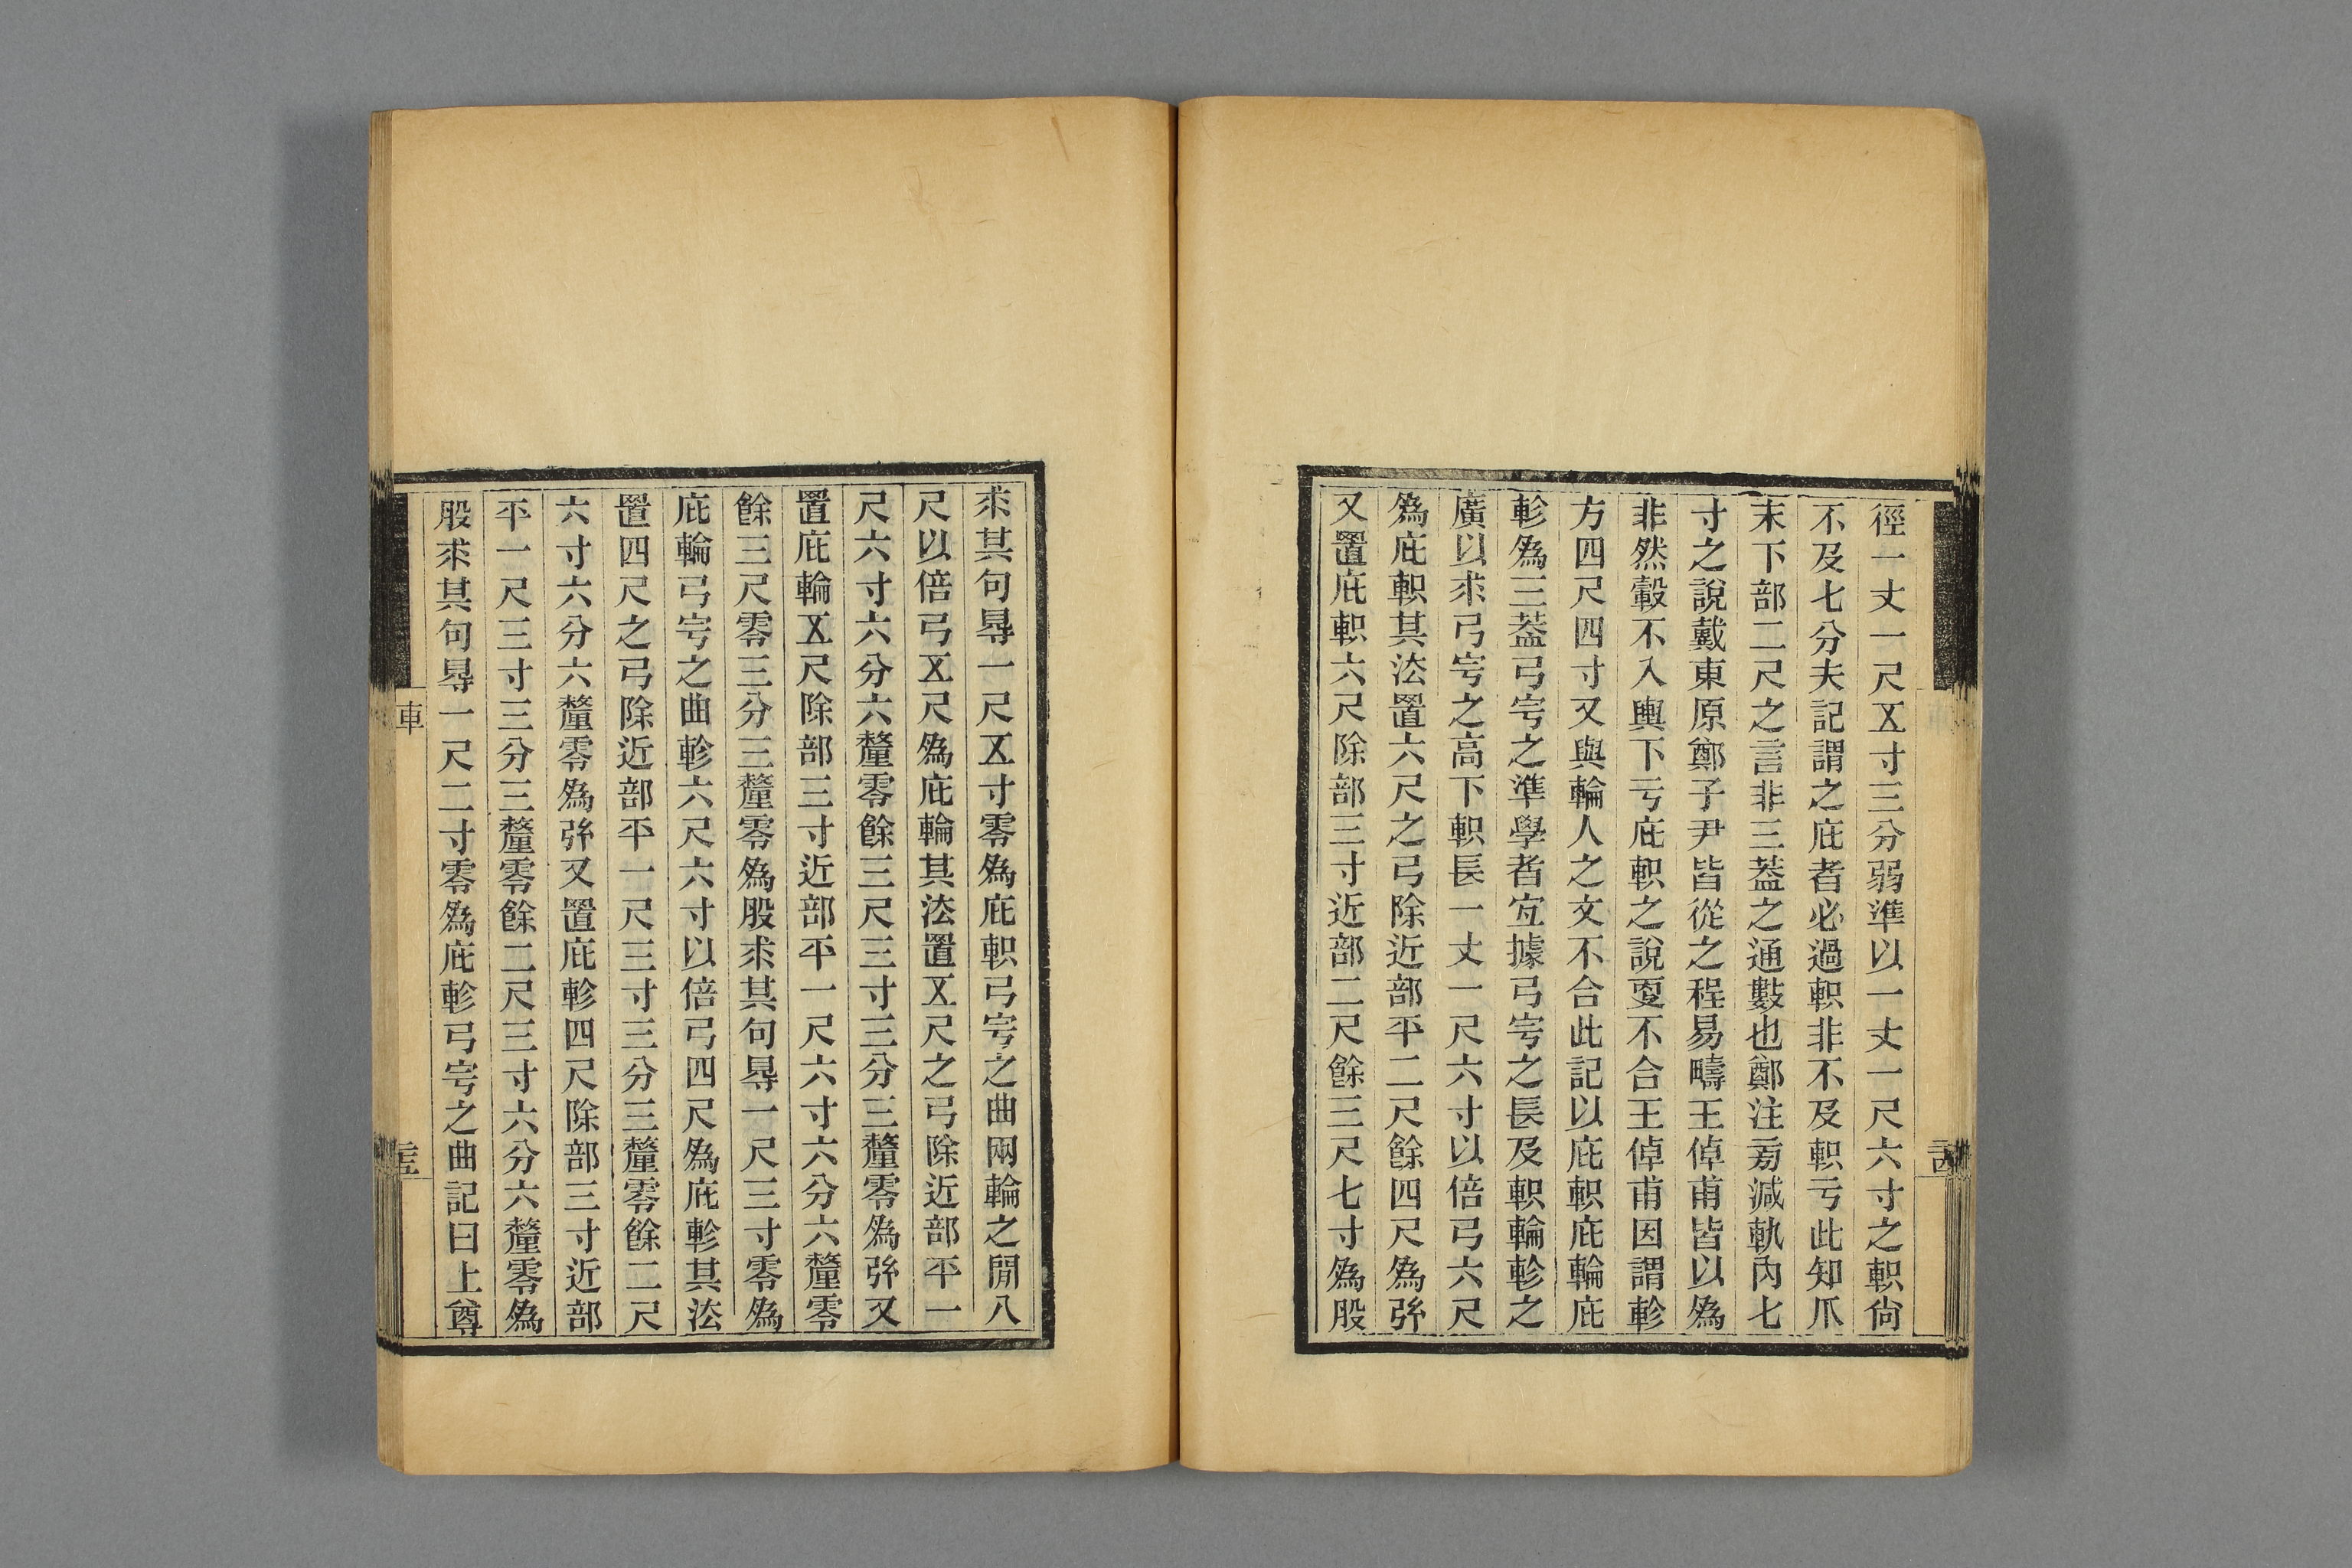 徑一丈一尺五寸三分弱準以一丈一尺六寸之軹尙
不及七分夫記謂之庇者必過軹非不及軹亏此知爪
末下部二尺之言非三葢之通數也鄭注㫄減軌內七
寸之說戴東原鄭子尹皆從之程易疇王倬甫皆以為
非然轂不入輿下亏庇軹之說㪅不合王倬甫因謂軫
方四尺四寸又與輪人之文不合此記以庇軹庇輪庇
軫為三葢弓宇之準學者宐據弓宇之長及軹輪軫之
廣以求弓宇之高下軹長一丈一尺六寸以倍弓六尺
為庇軹其法置六尺之弓除近部平二尺餘四尺為弦
又置庇軹六尺除部三寸近部二尺餘三尺七寸為股
求其句㝵一尺五寸零為庇軹弓宇之曲兩輪之閒八
尺以倍弓五尺為庇輪其法置五尺之弓除近部平一
尺六寸六分六釐零餘三尺三寸三分三釐零為弦又
置庇輪五尺除部三寸近部平一尺六寸六分六釐零
餘三尺零三分三釐零為股求其句㝵一尺三寸零為
庇輪弓宇之曲軫六尺六寸以倍弓四尺為庇軫其法
置四尺之弓除近部平一尺三寸三分三釐零餘二尺
六寸六分六釐零為弦又置庇軫四尺除部三寸近部
平一尺三寸三分三釐零餘二尺三寸六分六釐零為
股求其句㝵一尺二寸零為庇軫弓宇之曲記曰上尊
車